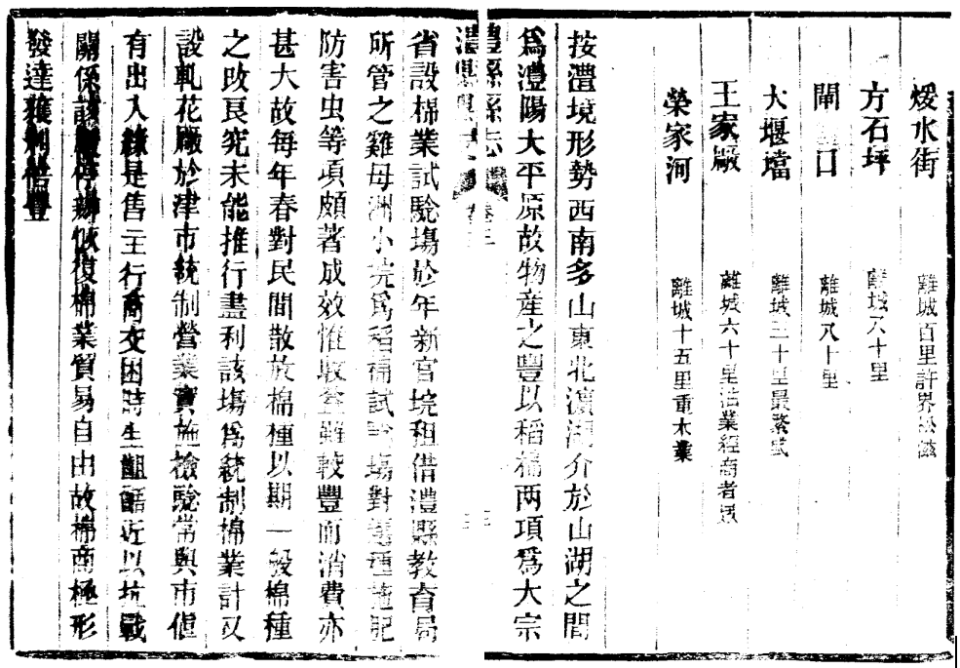 煖水街 離城百里許界松滋
方石坪 離城六十里
閘口 離城八十里
大堰壋 離城三十里最繁盛
王家廠 離城六十里油業經商者衆
榮家河 離城十五里重木業
按澧境形勢西南多山東北濱湖介於山湖之間
爲澧陽大平原故物産之豐以稻棉两項爲大宗
澧縣縣志 卷三
省設棉業試驗塲於年新官垸租借澧縣教育局
所管之雞母洲小垸爲稻棉試驗塲對選種施肥
防害虫等項頗著成效惟收益雖較豐而消費亦
甚大故每年春對民間散放棉種以期一般棉種
之改良究未能推行盡利該塲爲統制棉業計又
設軋花廠於津市統制營業實施檢驗常與市價
有出入緣是售主行商交困時生齟齬近以抗戰
關係該廠停辦恢復棉業貿易自由故棉商極形
發達獲利倍豐